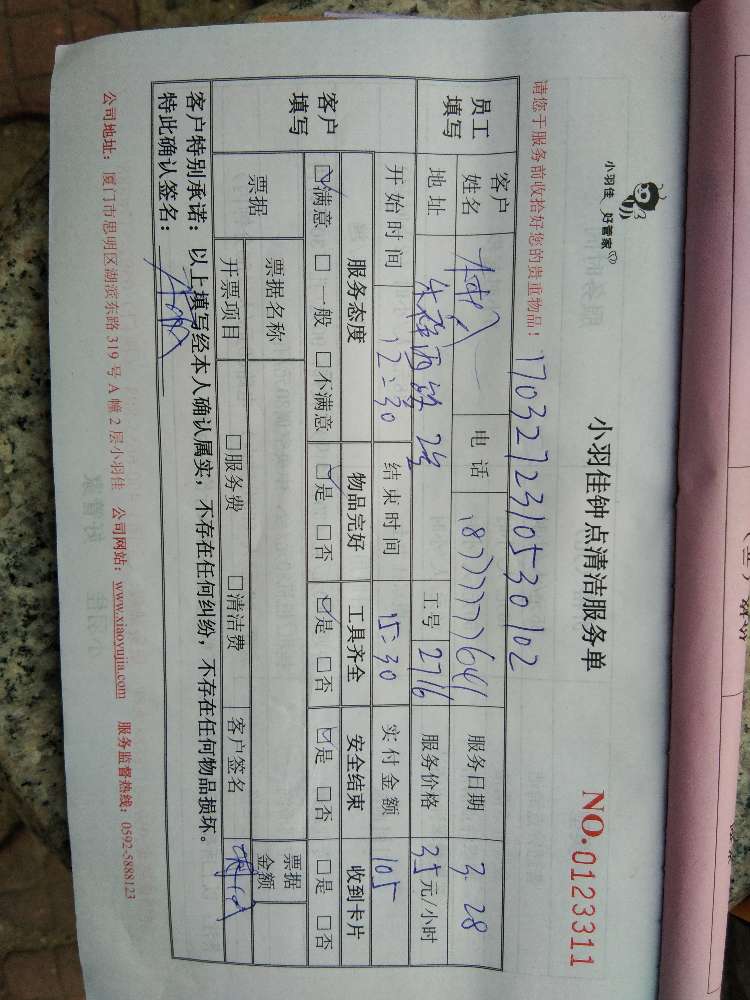 小羽佳 好管家
小羽佳钟点清洁服务单
NO.0123311
请您于服务前收拾好您的贵重物品！
1703272310530102
员工填写
客户姓名
电话
服务日期 3.28
地址
工号 2716
服务价格 35元/小时
开始时间 12:30
结束时间 15:30
实付金额 105
客户填写
服务态度 物品完好 工具齐全 安全结束 收到卡片
☑满意 □一般 □不满意 ☑是 □否 ☑是 □否 ☑是 □否 □是 □否
票据 票据名称 票据金额
开票项目 □服务费 □清洁费 客户签名
客户特别承诺：以上填写经本人确认属实，不存在任何纠纷，不存在任何物品损坏。
特此确认签名：
公司地址：厦门市思明区湖滨东路319号A幢2层小羽佳 公司网站：www.xiaoyujia.com 服务监督热线：0592-5888123